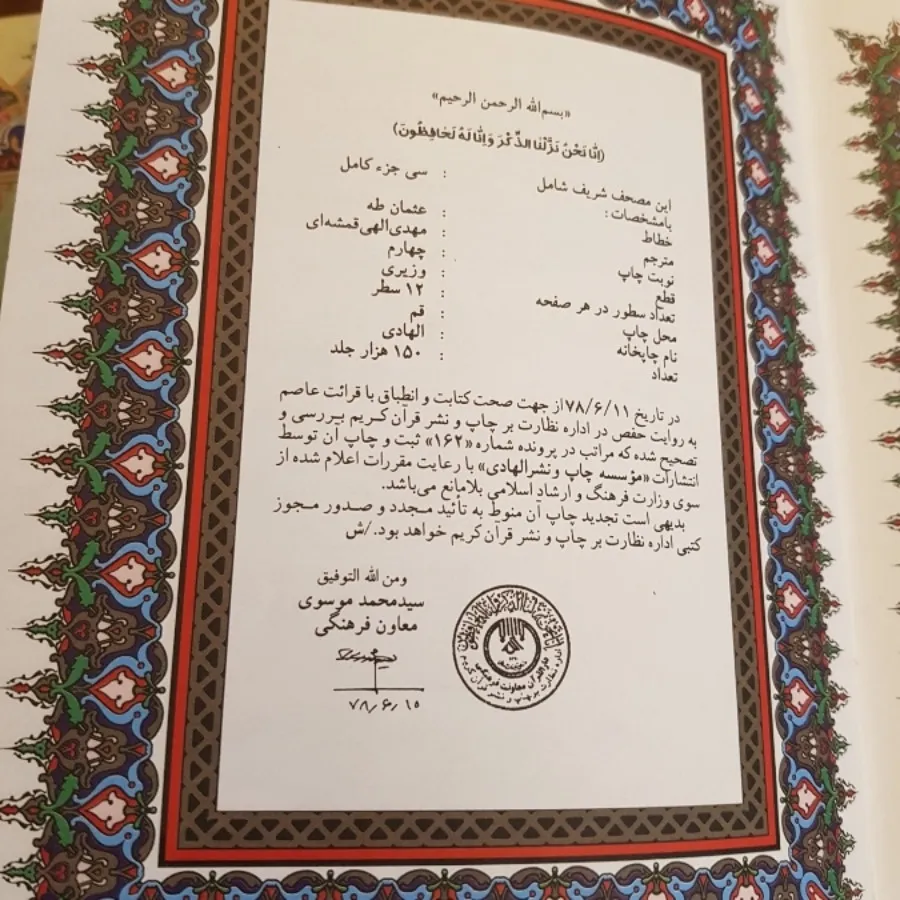 «بسم‌الله الرحمن الرحیم»
(اِنّا نَحْنُ نَزَّلْنَا الذِّكْرَ وَاِنّا لَهُ لَحافِظُونَ)
این مصحف شریف شامل : سی جزء کامل
بامشخصات :
خطاط : عثمان طه
مترجم : مهدی‌الهی‌قمشه‌ای
نوبت چاپ : چهارم
قطع : وزیری
تعداد سطور در هر صفحه : ۱۲ سطر
محل چاپ : قم
نام چاپخانه : الهادی
تعداد : ۱۵۰ هزار جلد
در تاریخ ۷۸/۶/۱۱ از جهت صحت کتابت و انطباق با قرائت عاصم
به روایت حفص در اداره نظارت بر چاپ و نشر قرآن کریم بررسی و
تصحیح شده که مراتب در پرونده شماره «۱۶۲» ثبت و چاپ آن توسط
انتشارات «مؤسسه چاپ ونشرالهادی» با رعایت مقررات اعلام شده از
سوی وزارت فرهنگ و ارشاد اسلامی بلامانع می‌باشد.
بدیهی است تجدید چاپ آن منوط به تأئید مجدد و صدور مجوز
کتبی اداره نظارت بر چاپ و نشر قرآن کریم خواهد بود./ش
ومن الله التوفیق
سیدمحمد موسوی
معاون فرهنگی
۷۸٫۶٫۱۵
دارالقرآن معاونت فرهنگی
اداره نظارت بر چاپ و نشر قرآن کریم